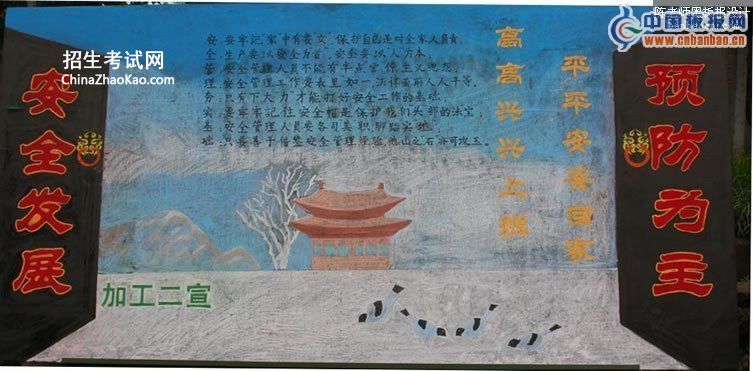 陈老师黑板报设计
中国板报网
www.cnbanbao.cn
招生考试网
ChinaZhaoKao.com
安全发展
预防为主
高高兴兴上班
平平安安回家
安:安牢记,家中有妻女,保护自己是对全家人负责。
全:生产要以安全为首,安全要以人为本。
管:安全管理人员不能有半点官僚主义思想。
理:安全管理工作要表里如一,法律面前人人平等。
务:只有下大力才能打好安全工作的基础。
实:要牢牢记住安全帽是保护我们头部的法宝。
基:安全管理人员要各司其职,脚踏实地。
础:只要善于借鉴安全管理经验他山之石亦可攻玉。
加工二宣